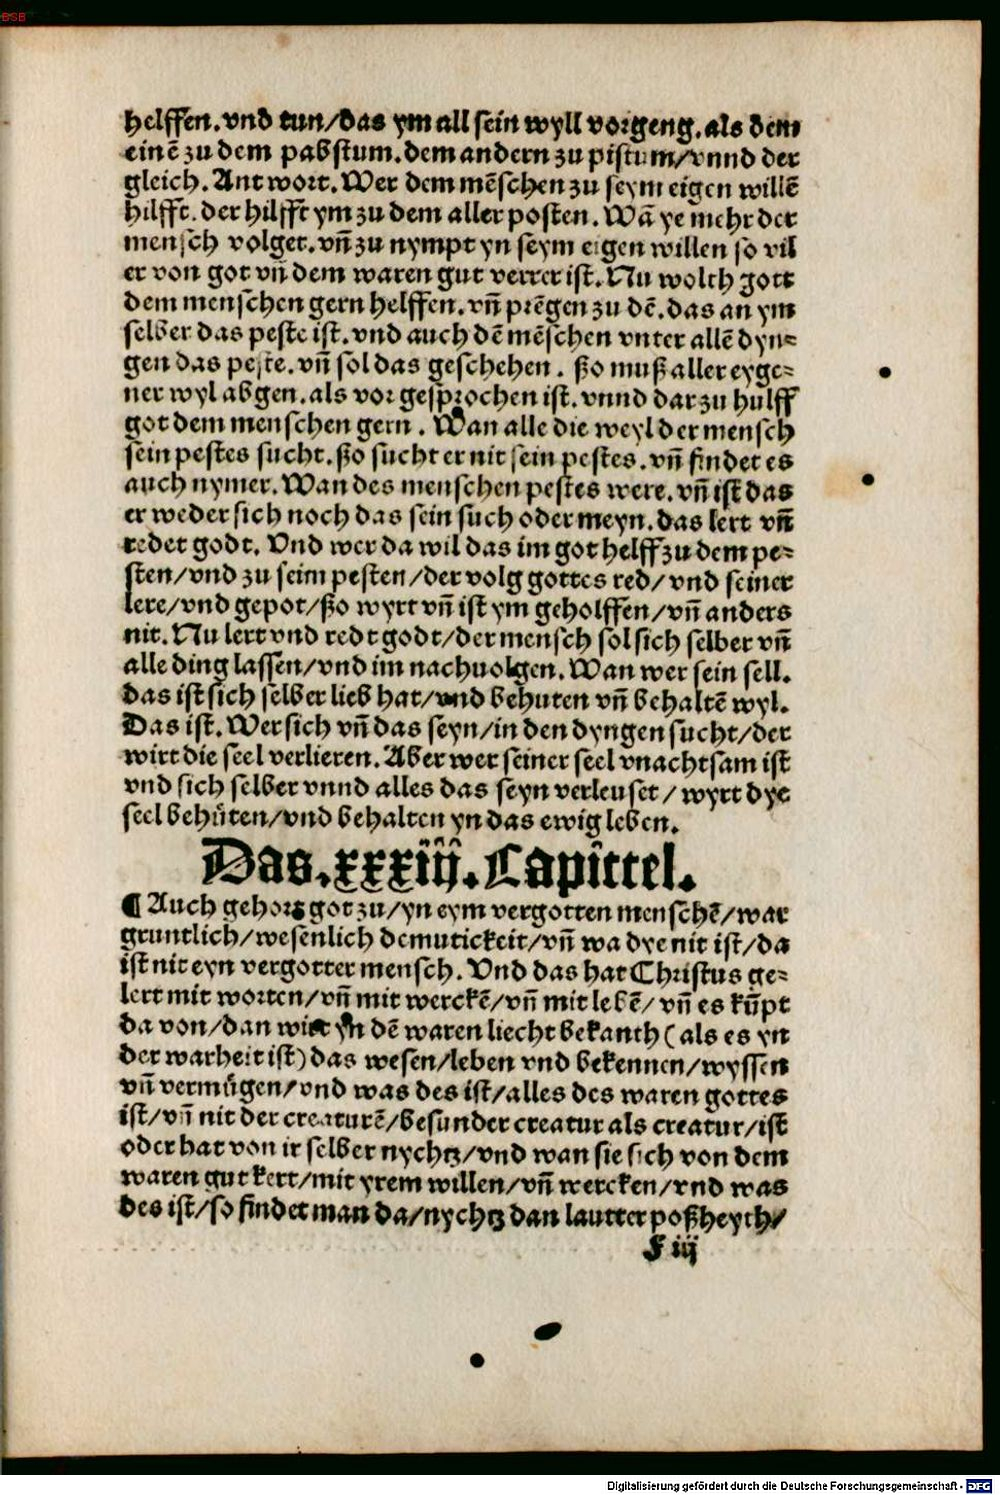 BSB
helffen. vnd tun/das ym all sein wyll vorgeng. als dem
einē zu dem pabstum. dem andern zu pistum/vnnd der
gleich. Antwort. Wer dem mēschen zu seym eigen willē
hilfft. der hilfft ym zu dem aller posten. Wā ye mehr der
mensch volget. vn̄ zu nympt yn seym eigen willen so vil
er von got vn̄ dem waren gut verrer ist. Nu wolth gott
dem menschen gern helffen. vn̄ prēgen zu dē. das an ym
selber das peste ist. vnd auch dē mēschen vnter allē dyn⸗
gen das peste. vn̄ sol das geschehen. ßo muß aller eyge⸗
ner wyl abgen. als vor gesprochen ist. vnnd dar zu hulff
got dem menschen gern. Wan alle die weyl der mensch
sein pestes sucht. ßo sucht er nit sein pestes. vn̄ findet es
auch nymer. Wan des menschen pestes were. vn̄ ist das
er weder sich noch das sein such oder meyn. das lert vn̄
redet godt. Vnd wer da wil das im got helff zu dem pe⸗
sten/vnd zu seim pesten/der volg gottes red/vnd seiner
lere/vnd gepot/ßo wyrt vn̄ ist ym geholffen/vn̄ anders
nit. Nu lert vnd redt godt/der mensch sol sich selber vn̄
alle ding lassen/vnd im nachuolgen. Wan wer sein sell.
das ist sich selber lieb hat/vnd behuten vn̄ behaltē wyl.
Das ist. Wer sich vn̄ das seyn/in den dyngen sucht/der
wirt die seel verlieren. Aber wer seiner seel vnachtsam ist
vnd sich selber vnnd alles das seyn verleuset/wyrt dye
seel behüten/vnd behalten yn das ewig leben.
Das. xxxiij. Capittel.
¶ Auch gehort got zu/yn eym vergotten menschē/war
gruntlich/wesenlich demutickeit/vn̄ wa dye nit ist/da
ist nit eyn vergotter mensch. Vnd das hat Christus ge⸗
lert mit worten/vn̄ mit werckē/vn̄ mit lebē/ vn̄ es kūpt
da von/dan wirt yn dē waren liecht bekanth (als es yn
der warheit ist) das wesen/leben vnd bekennen/wyssen
vn̄ vermügen/vnd was des ist/alles des waren gottes
ist/vn̄ nit der creaturē/besunder creatur als creatur/ist
oder hat von ir selber nychtz/vnd wan sie sich von dem
waren gut kert/mit yrem willen/vn̄ wercken/vnd was
des ist/so findet man da/nychtz dan lautter poßheyth/
F iij
Digitalisierung gefördert durch die Deutsche Forschungsgemeinschaft - DFG